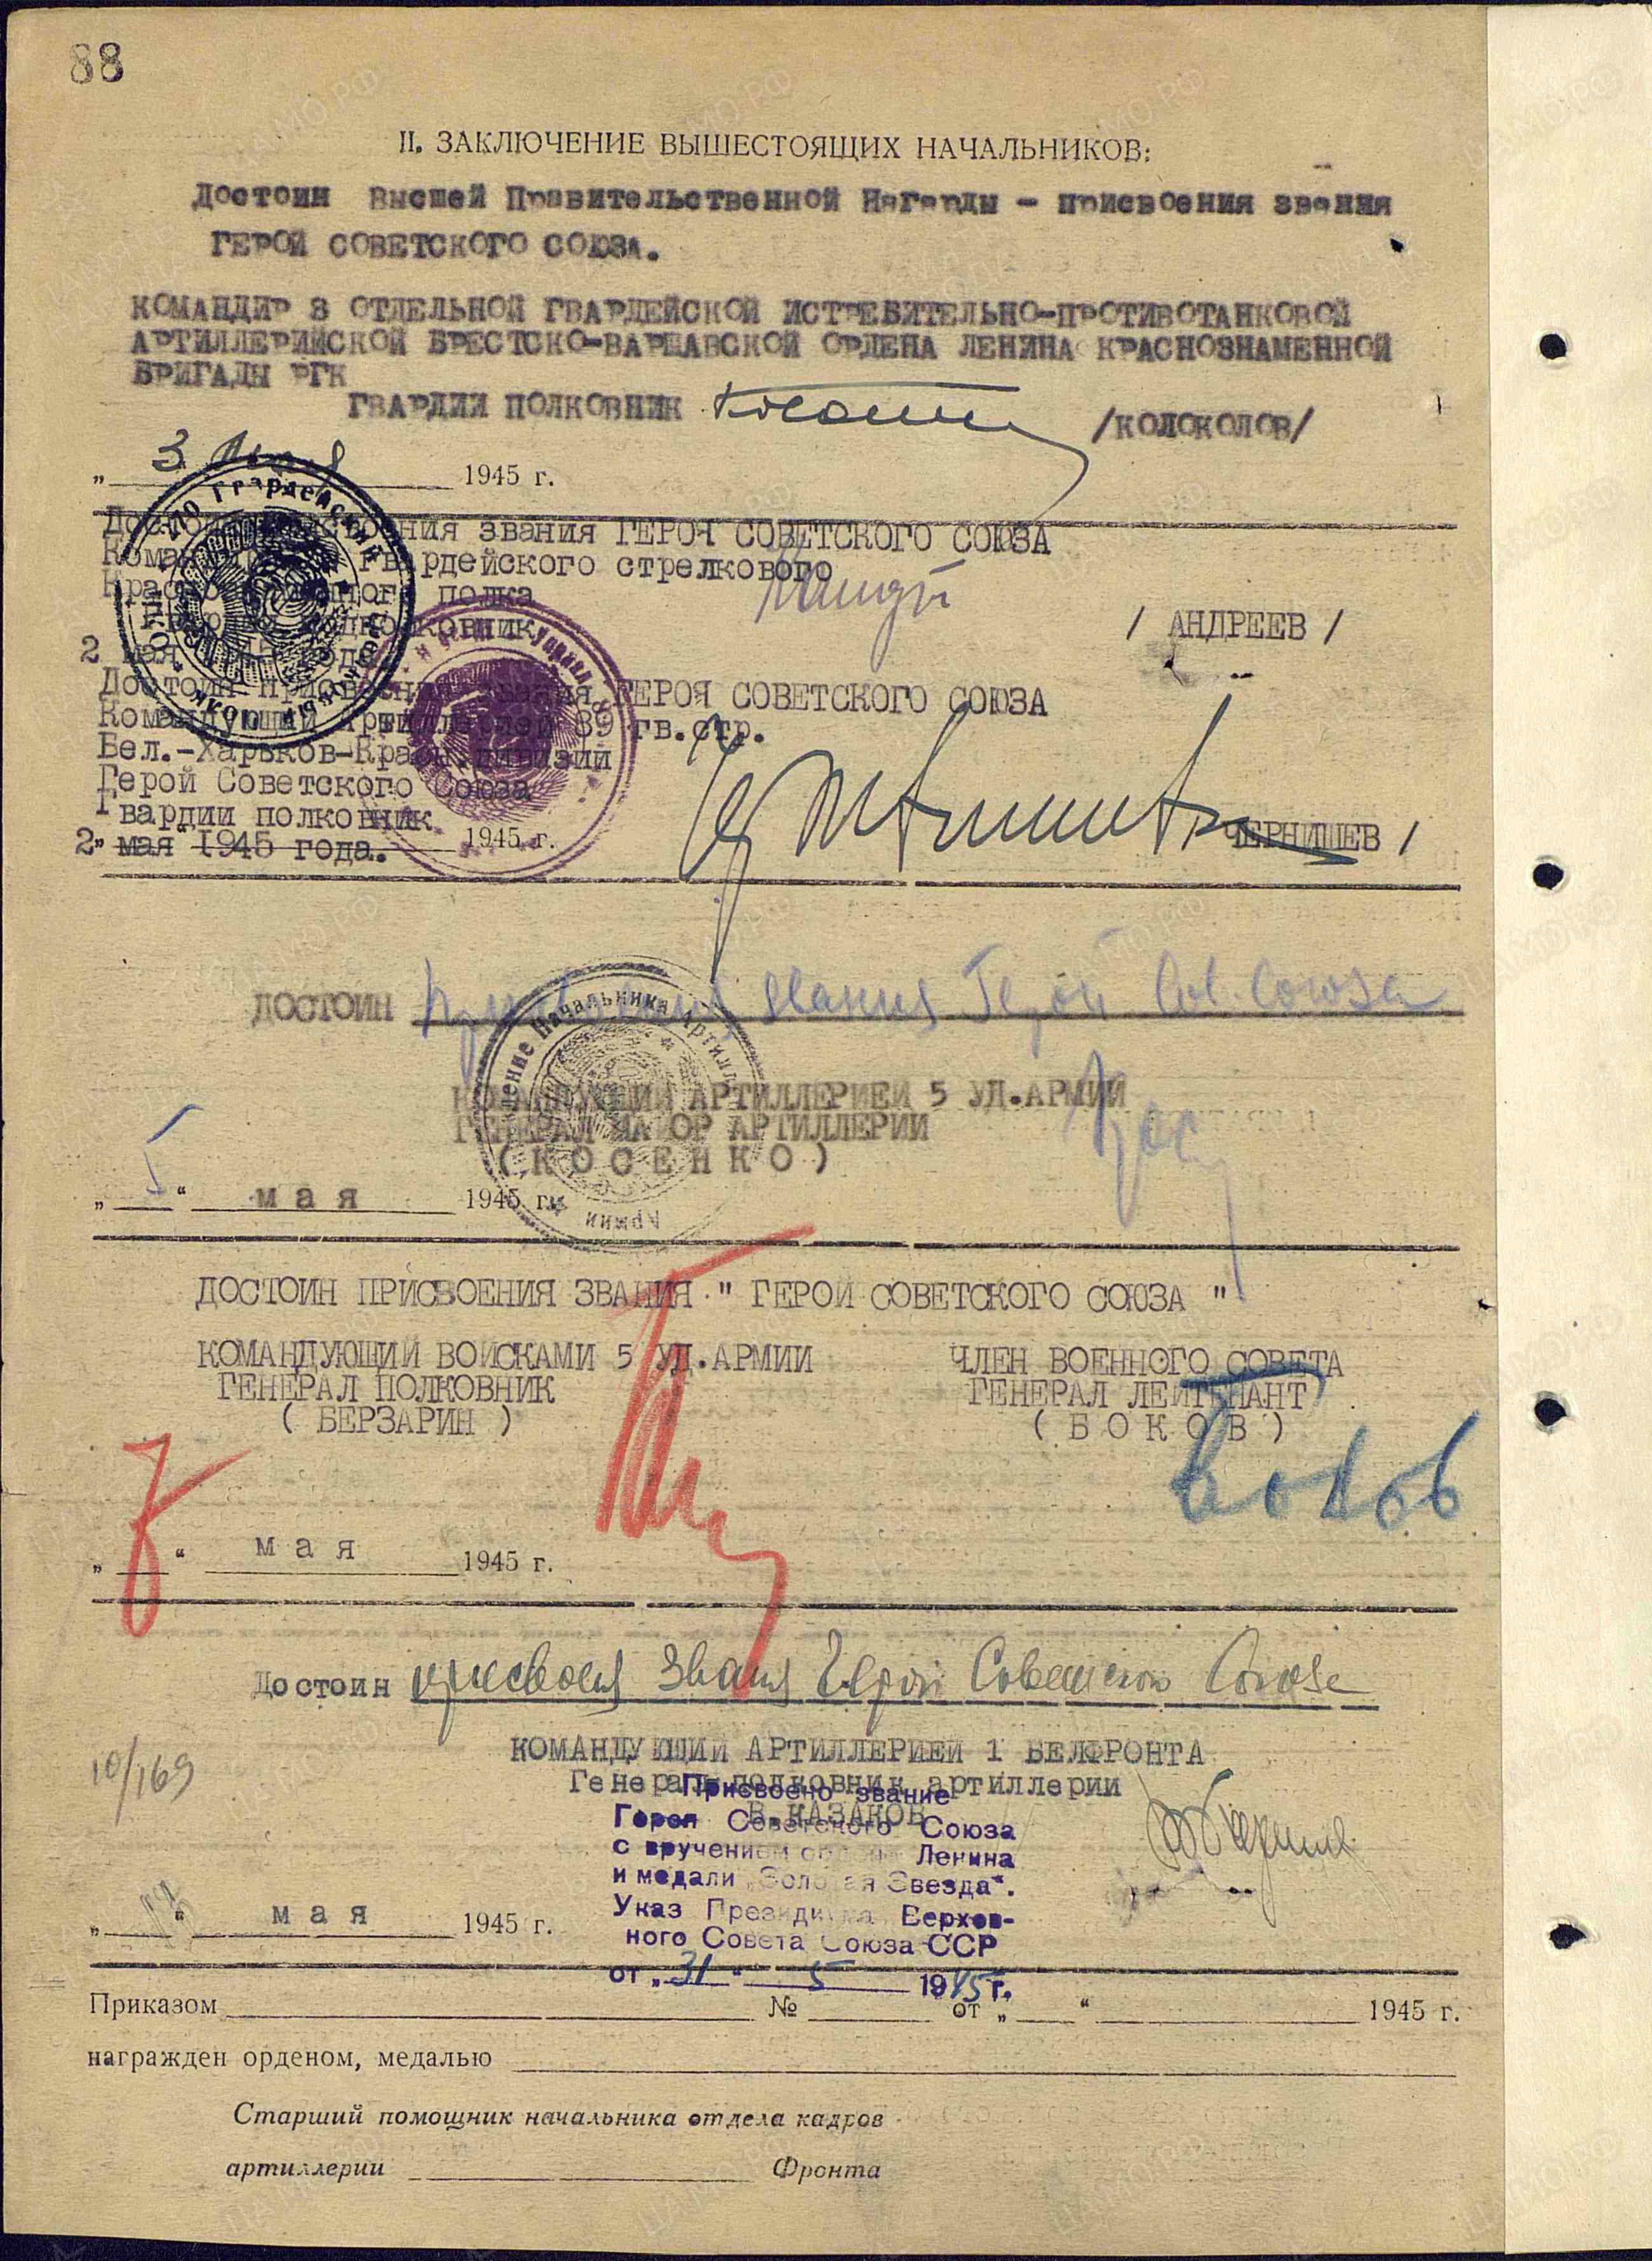 88
II. ЗАКЛЮЧЕНИЕ ВЫШЕСТОЯЩИХ НАЧАЛЬНИКОВ:
Достоин Высшей Правительственной Награды – присвоения звания
ГЕРОЙ СОВЕТСКОГО СОЮЗА.
КОМАНДИР 3 ОТДЕЛЬНОЙ ГВАРДЕЙСКОЙ ИСТРЕБИТЕЛЬНО-ПРОТИВОТАНКОВОЙ
АРТИЛЛЕРИЙСКОЙ БРЕСТСКО-ВАРШАВСКОЙ ОРДЕНА ЛЕНИНА КРАСНОЗНАМЕННОЙ
БРИГАДЫ РГК
ГВАРДИИ ПОЛКОВНИК /КОЛОКОЛОВ/
„ 3 Мая 1945 г.
Достоин присвоения звания ГЕРОЯ СОВЕТСКОГО СОЮЗА
Командир гвардейского стрелкового
Краснознаменного полка
Гвардии подполковник / АНДРЕЕВ /
2 мая 1945 года
Достоин присвоения звания ГЕРОЯ СОВЕТСКОГО СОЮЗА
Командующий Артиллерией 89 гв.стр.
Бел.-Харьков-Красн.дивизии
Герой Советского Союза
Гвардии полковник ЧЕРНИШЕВ /
2" мая 1945 года. 1945 г.
ДОСТОИН присвоения звания Герой Сов. Союза
КОМАНДУЮЩИЙ АРТИЛЛЕРИЕЙ 5 УД.АРМИИ
ГЕНЕРАЛ МАЙОР АРТИЛЛЕРИИ
( К О С Е Н К О )
„ 5 “ м а я 1945 г.
ДОСТОИН ПРИСВОЕНИЯ ЗВАНИЯ " ГЕРОЙ СОВЕТСКОГО СОЮЗА "
КОМАНДУЮЩИЙ ВОЙСКАМИ 5 УД.АРМИИ ЧЛЕН ВОЕННОГО СОВЕТА
ГЕНЕРАЛ ПОЛКОВНИК ГЕНЕРАЛ ЛЕЙТЕНАНТ
( БЕРЗАРИН ) ( Б О К О В )
Боков
„ “ м а я 1945 г.
Достоин присвоения звания Герой Советского Союза
КОМАНДУЮЩИЙ АРТИЛЛЕРИЕЙ 1 БЕЛФРОНТА
Генерал-полковник артиллерии
В.КАЗАКОВ
10/169
Присвоено звание
Героя Советского Союза
с вручением ордена Ленина
и медали „Золотая Звезда“.
Указ Президиума Верхов-
ного Совета Союза ССР
от „ 31 “ 5 1945 г.
„ “ м а я 1945 г.
Приказом № от „ “ 1945 г.
награжден орденом, медалью
Старший помощник начальника отдела кадров
артиллерии Фронта